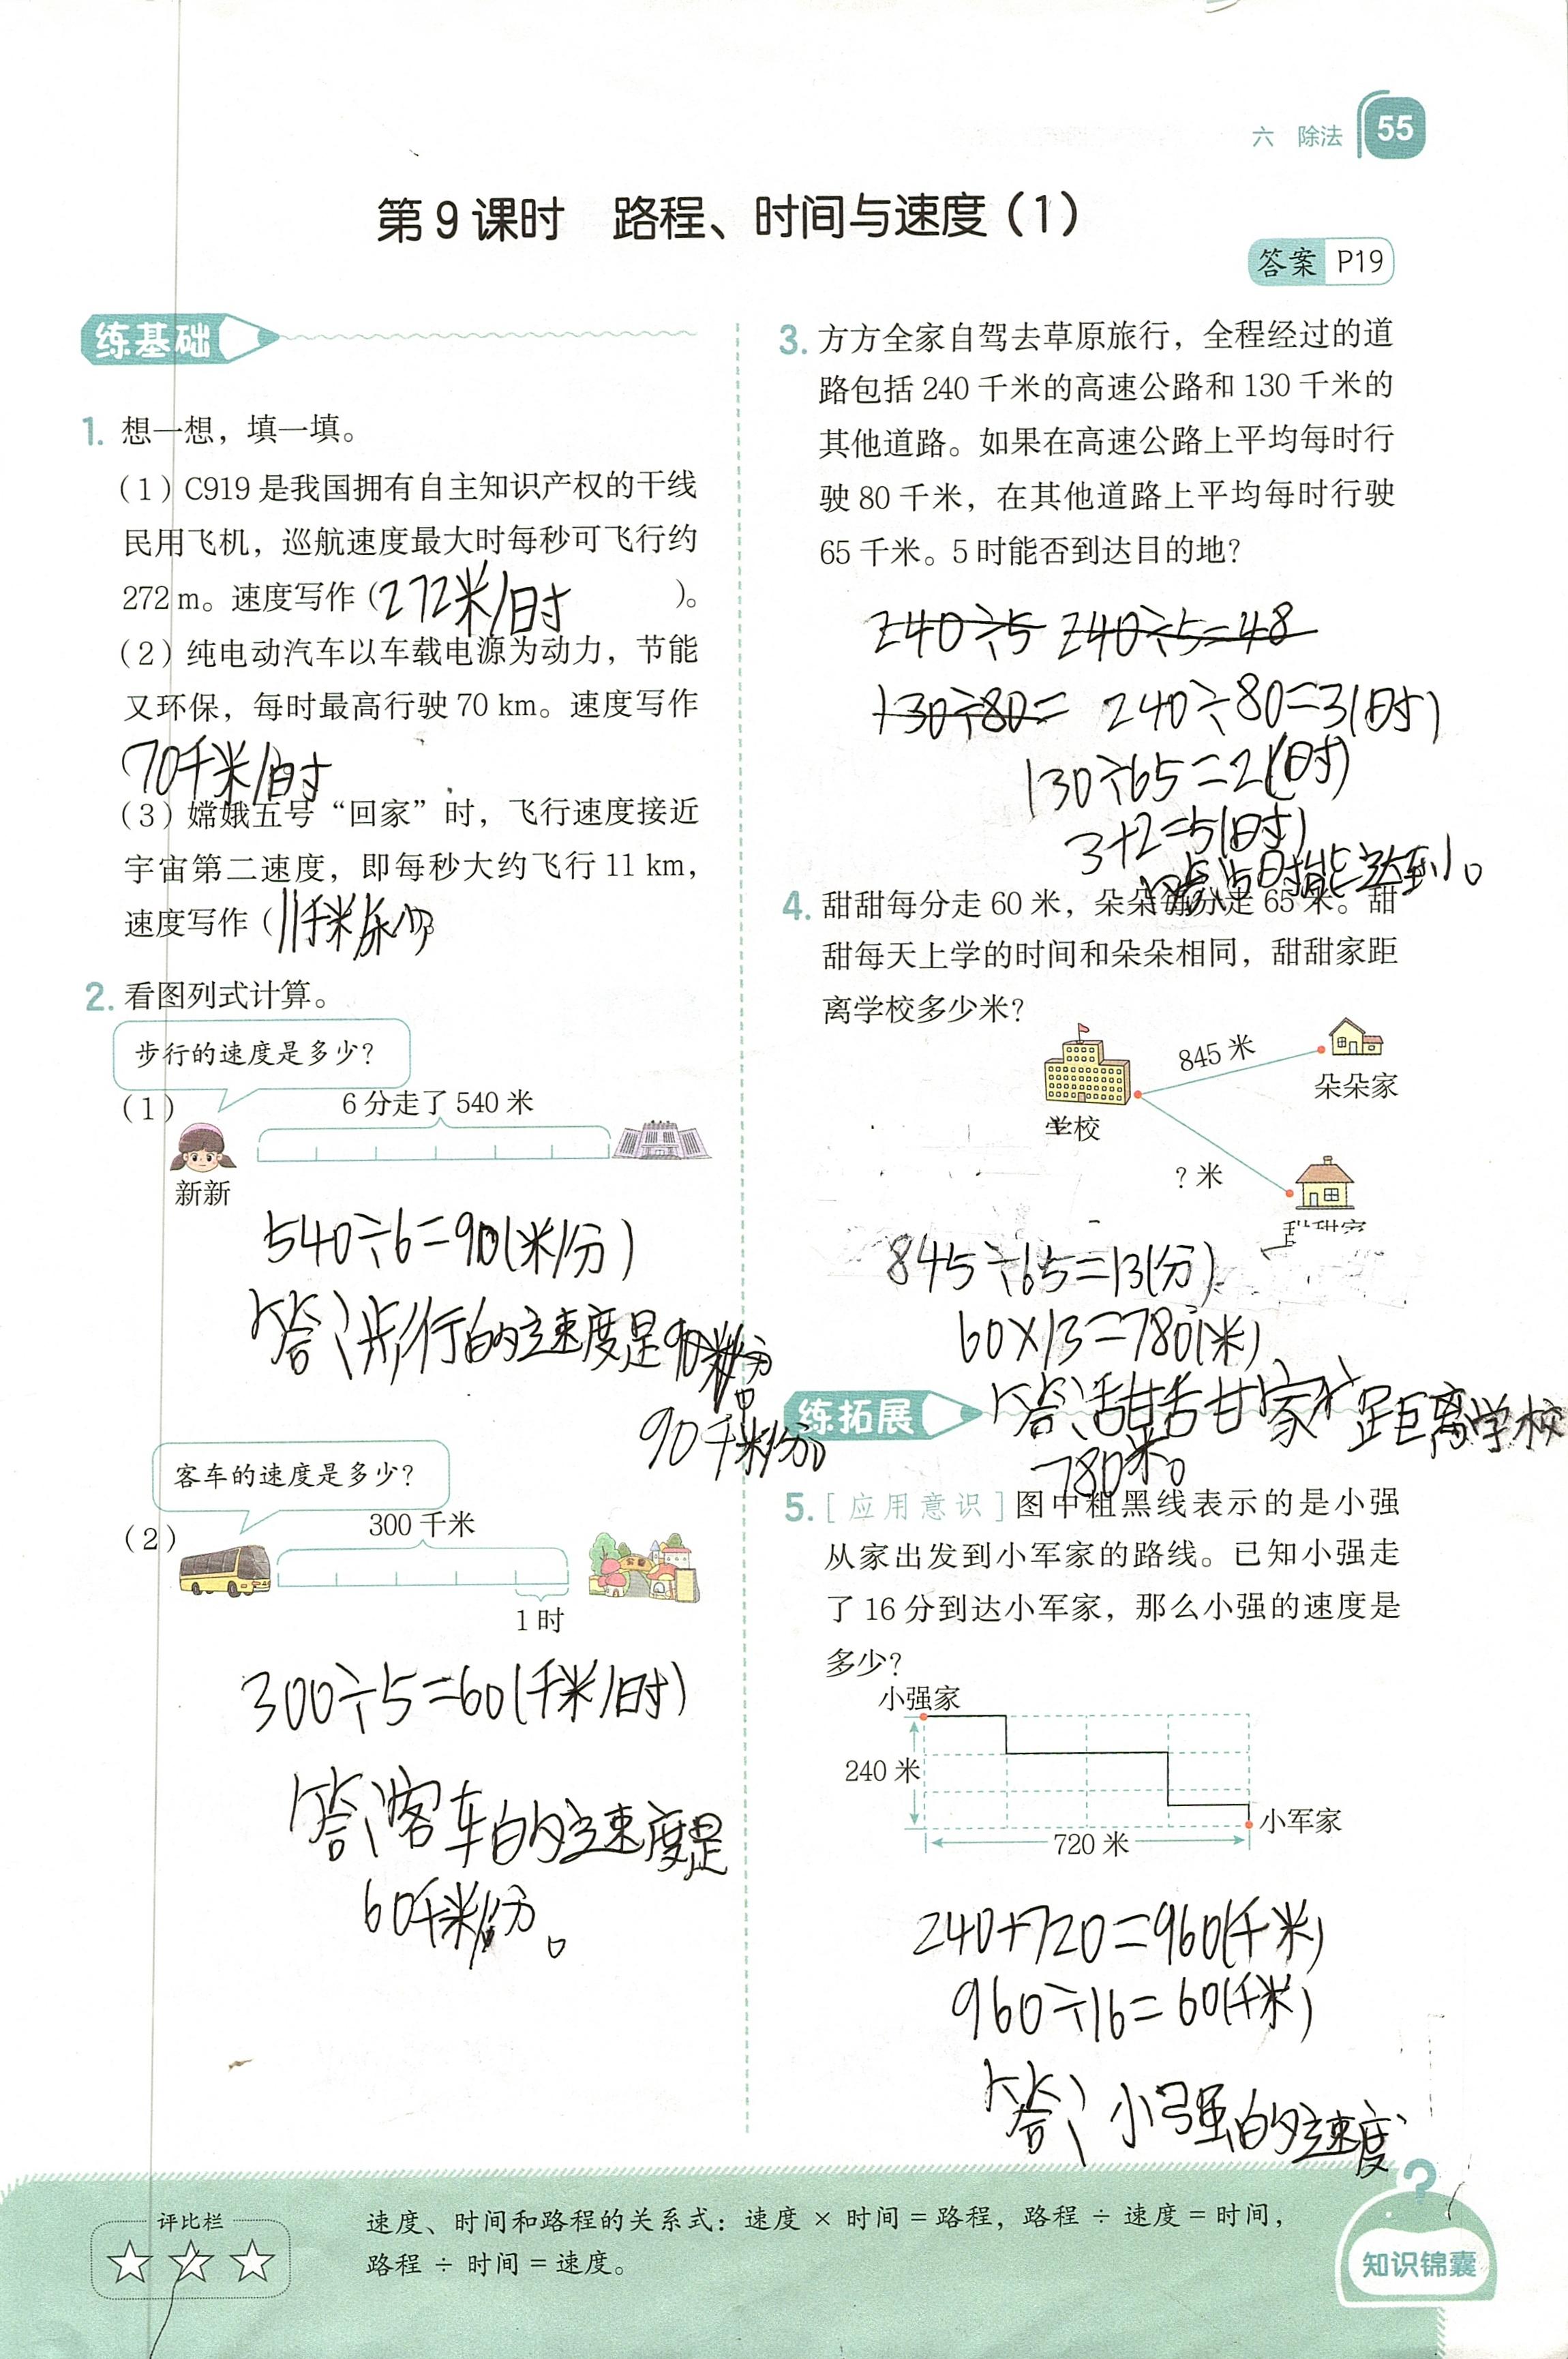 六 除法 55
第9课时 路程、时间与速度(1)
答案 P19
练基础
1. 想一想，填一填。
(1) C919是我国拥有自主知识产权的干线
民用飞机，巡航速度最大时每秒可飞行约
272 m。速度写作(272米/时)。
(2) 纯电动汽车以车载电源为动力，节能
又环保，每时最高行驶70 km。速度写作
(70千米/时
(3) 嫦娥五号“回家”时，飞行速度接近
宇宙第二速度，即每秒大约飞行11 km，
速度写作(11千米/秒
2. 看图列式计算。
步行的速度是多少?
(1)
6分走了540米
新新
540÷6=90(米/分)
答:步行的速度是
90千米/分。
客车的速度是多少?
(2)
300千米
1时
300÷5=60(千米/时)
答:客车的速度是
60千米/分。
3. 方方全家自驾去草原旅行，全程经过的道
路包括240千米的高速公路和130千米的
其他道路。如果在高速公路上平均每时行
驶80千米，在其他道路上平均每时行驶
65千米。5时能否到达目的地?
240÷5 240÷5=48
130÷80= 240÷80=3(时)
130÷65=2(时)
3+2=5(时)
时能达到。
4. 甜甜每分走60米，朵朵每分走65米。甜
甜每天上学的时间和朵朵相同，甜甜家距
离学校多少米?
845米
朵朵家
学校
?米
甜甜家
845÷65=13(分)
60×13=780(米)
练拓展
答:甜甜家距离学校
780米。
5. [应用意识]图中粗黑线表示的是小强
从家出发到小军家的路线。已知小强走
了16分到达小军家，那么小强的速度是
多少?
小强家
240米
小军家
720米
240+720=960(千米)
960÷16=60(千米)
答:小强的速度
评比栏
速度、时间和路程的关系式：速度×时间=路程，路程÷速度=时间，
路程÷时间=速度。
知识锦囊